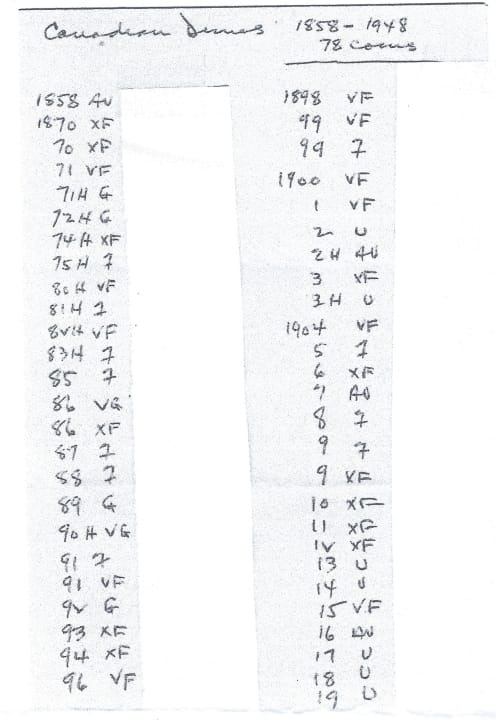 Canadian Dimes 1858 - 1948
78 coins
1858 AU
1870 XF
70 XF
71 VF
71H G
72H G
74H XF
75H F
80H VF
81H F
82H VF
83H F
85 F
86 VG
86 XF
87 F
88 F
89 G
90H VG
91 F
91 VF
92 G
93 XF
94 XF
96 VF
1898 VF
99 VF
99 F
1900 VF
1 VF
2 U
2H AU
3 XF
3H U
1904 VF
5 F
6 XF
7 AU
8 F
9 F
9 XF
10 XF
11 XF
12 XF
13 U
14 U
15 VF
16 AU
17 U
18 U
19 U